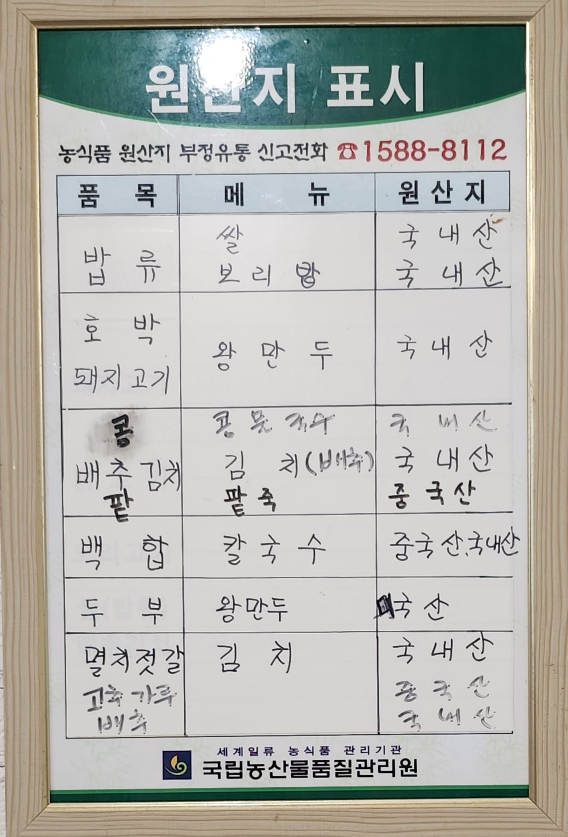 원산지 표시
농식품 원산지 부정유통 신고전화 ☎1588-8112
품 목 메 뉴 원 산 지
쌀 국 내 산
밥 류 보리 밥 국 내 산
호 박
왕 만 두 국 내 산
돼지고기
콩 콩물국수 국 내 산
배추김치 김 치(배추) 국 내 산
팥 팥죽 중국산
백 합 칼국수 중국산.국내산
두 부 왕만두 국산
멸치젓갈 김 치 국 내 산
고추가루 중 국 산
배추 국 내 산
세계일류 농식품 관리기관
국립농산물품질관리원